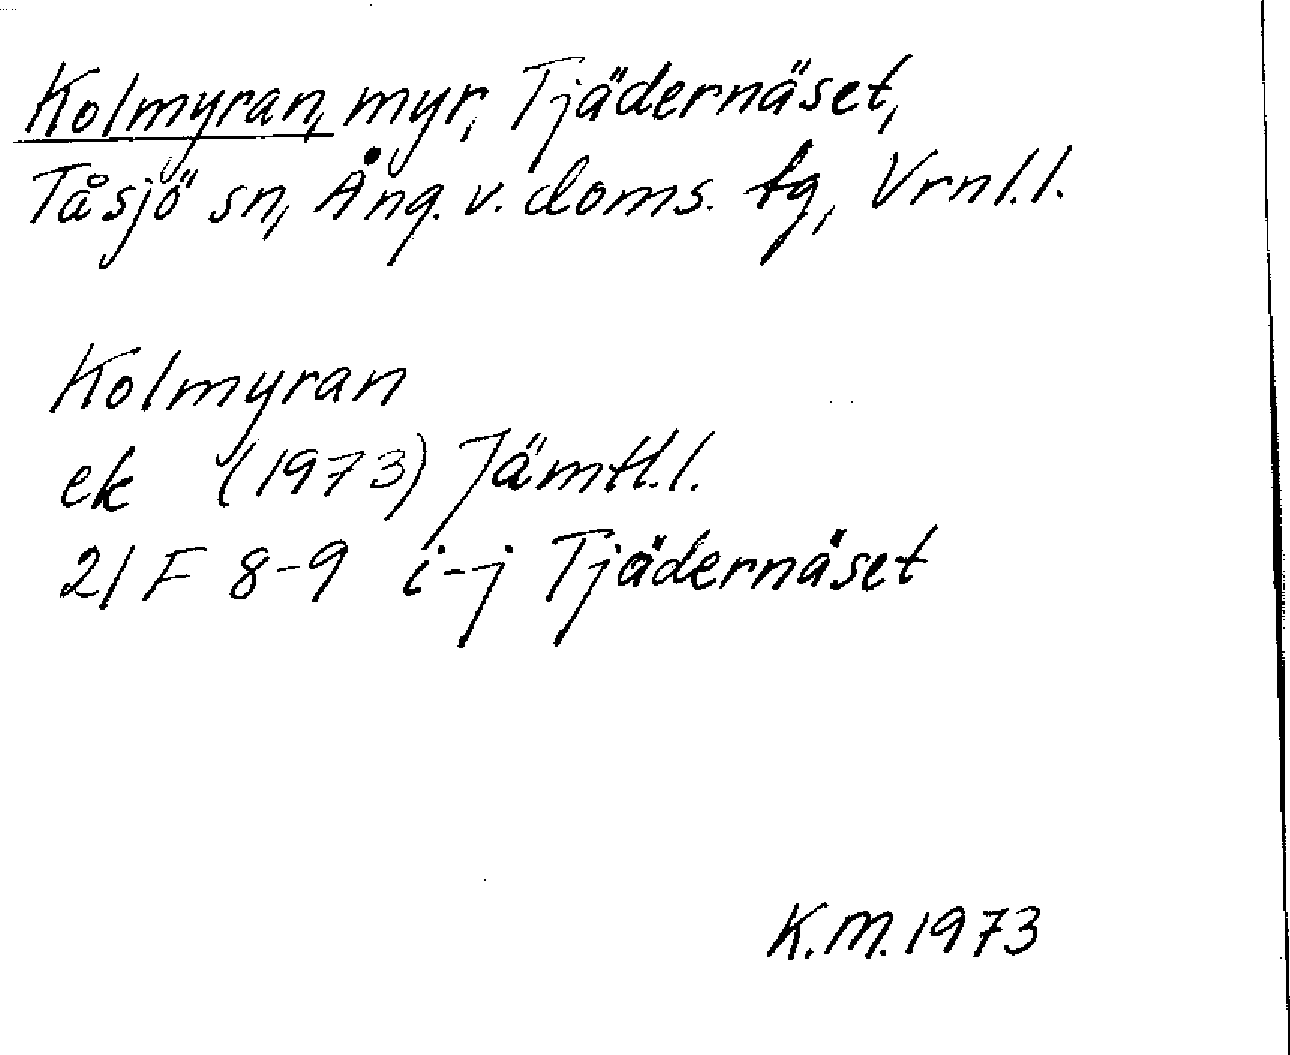 Kolmyran, myr, Tjädernäset,
Tåsjö sn, Ång. v. doms. tg, Vrnl.l.
Kolmyran
ek (1973) Jämtl.l.
21 F 8-9 i-j Tjädernäset
K.M. 1973